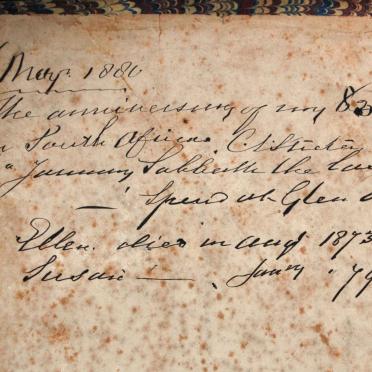 May. 1880
The anniversary of my 83
South Africa.
January Sabbath the
— Spend at Glen
Ellen. died in Aug 1873
Susan — Jany. 79